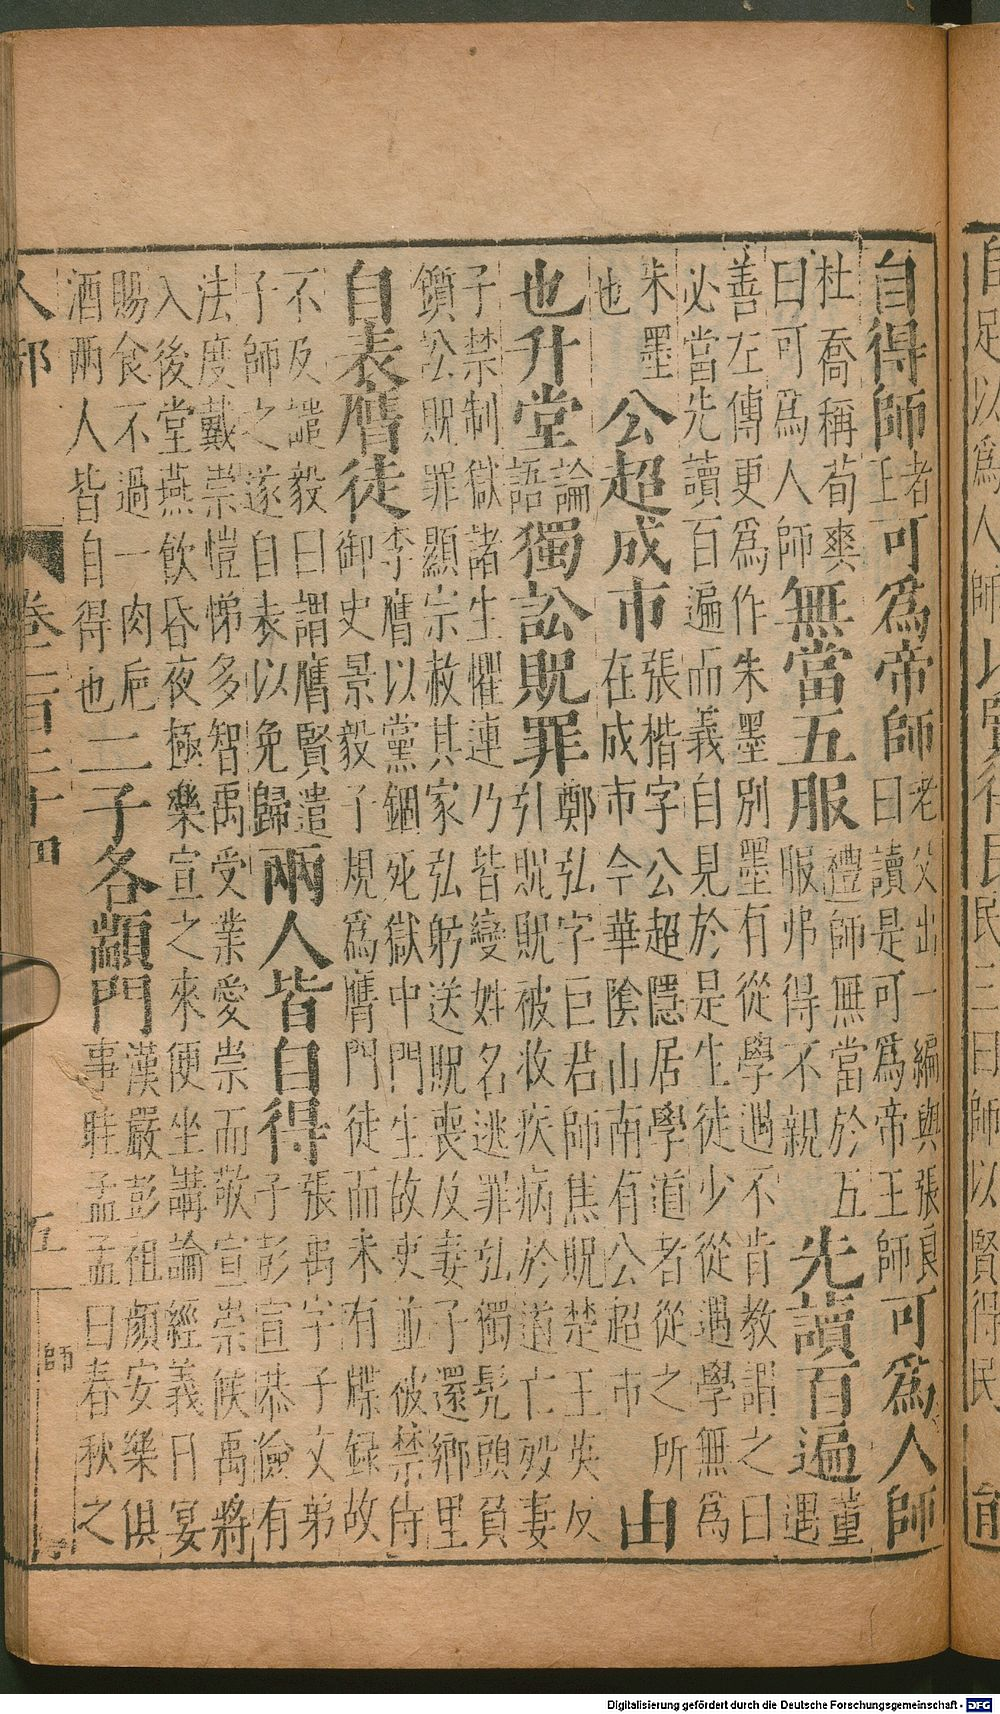 自得師
者
王
可爲帝師
老父出一編與張良
曰讀是可爲帝王師
可爲人師
杜喬稱荀爽
曰可爲人師
無當五服
禮師無當於五
服弗得不親
先讀百遍
董
遇
善左傳更爲作朱墨別墨有從學遇不肯教謂之曰
必當先讀百遍而義自見於是生徒少從遇學無爲
朱墨
也
公超成市
張楷字公超隱居學道者從之所
在成市今華陰山南有公超市
由
也升堂
論
語
獨訟貺罪
鄭弘字巨君師焦貺楚王英反
引貺貺被收疾病於道亡歿妻
子禁制獄諸生懼連乃皆變姓名逃罪弘獨髠頭負
鑕訟貺罪顯宗赦其家弘躬送貺喪及妻子還鄉里
自表膺徒
李膺以黨錮死獄中門生故吏並被禁侍
御史景毅子規爲膺門徒而未有牒録故
不及譴毅曰謂膺賢遣
子師之遂自表以免歸
兩人皆自得
張禹字子文弟
子彭宣恭儉有
法度戴崇愷悌多智禹受業愛崇而敬宣崇候禹將
入後堂燕飲昏夜極樂宣之來便坐講論經義日宴
賜食不過一肉巵
酒兩人皆自得也
二子各顓門
漢嚴彭祖顔安樂俱
事眭孟孟曰春秋之
人部
卷二百二十四
五
師
Digitalisierung gefördert durch die Deutsche Forschungsgemeinschaft - DFG